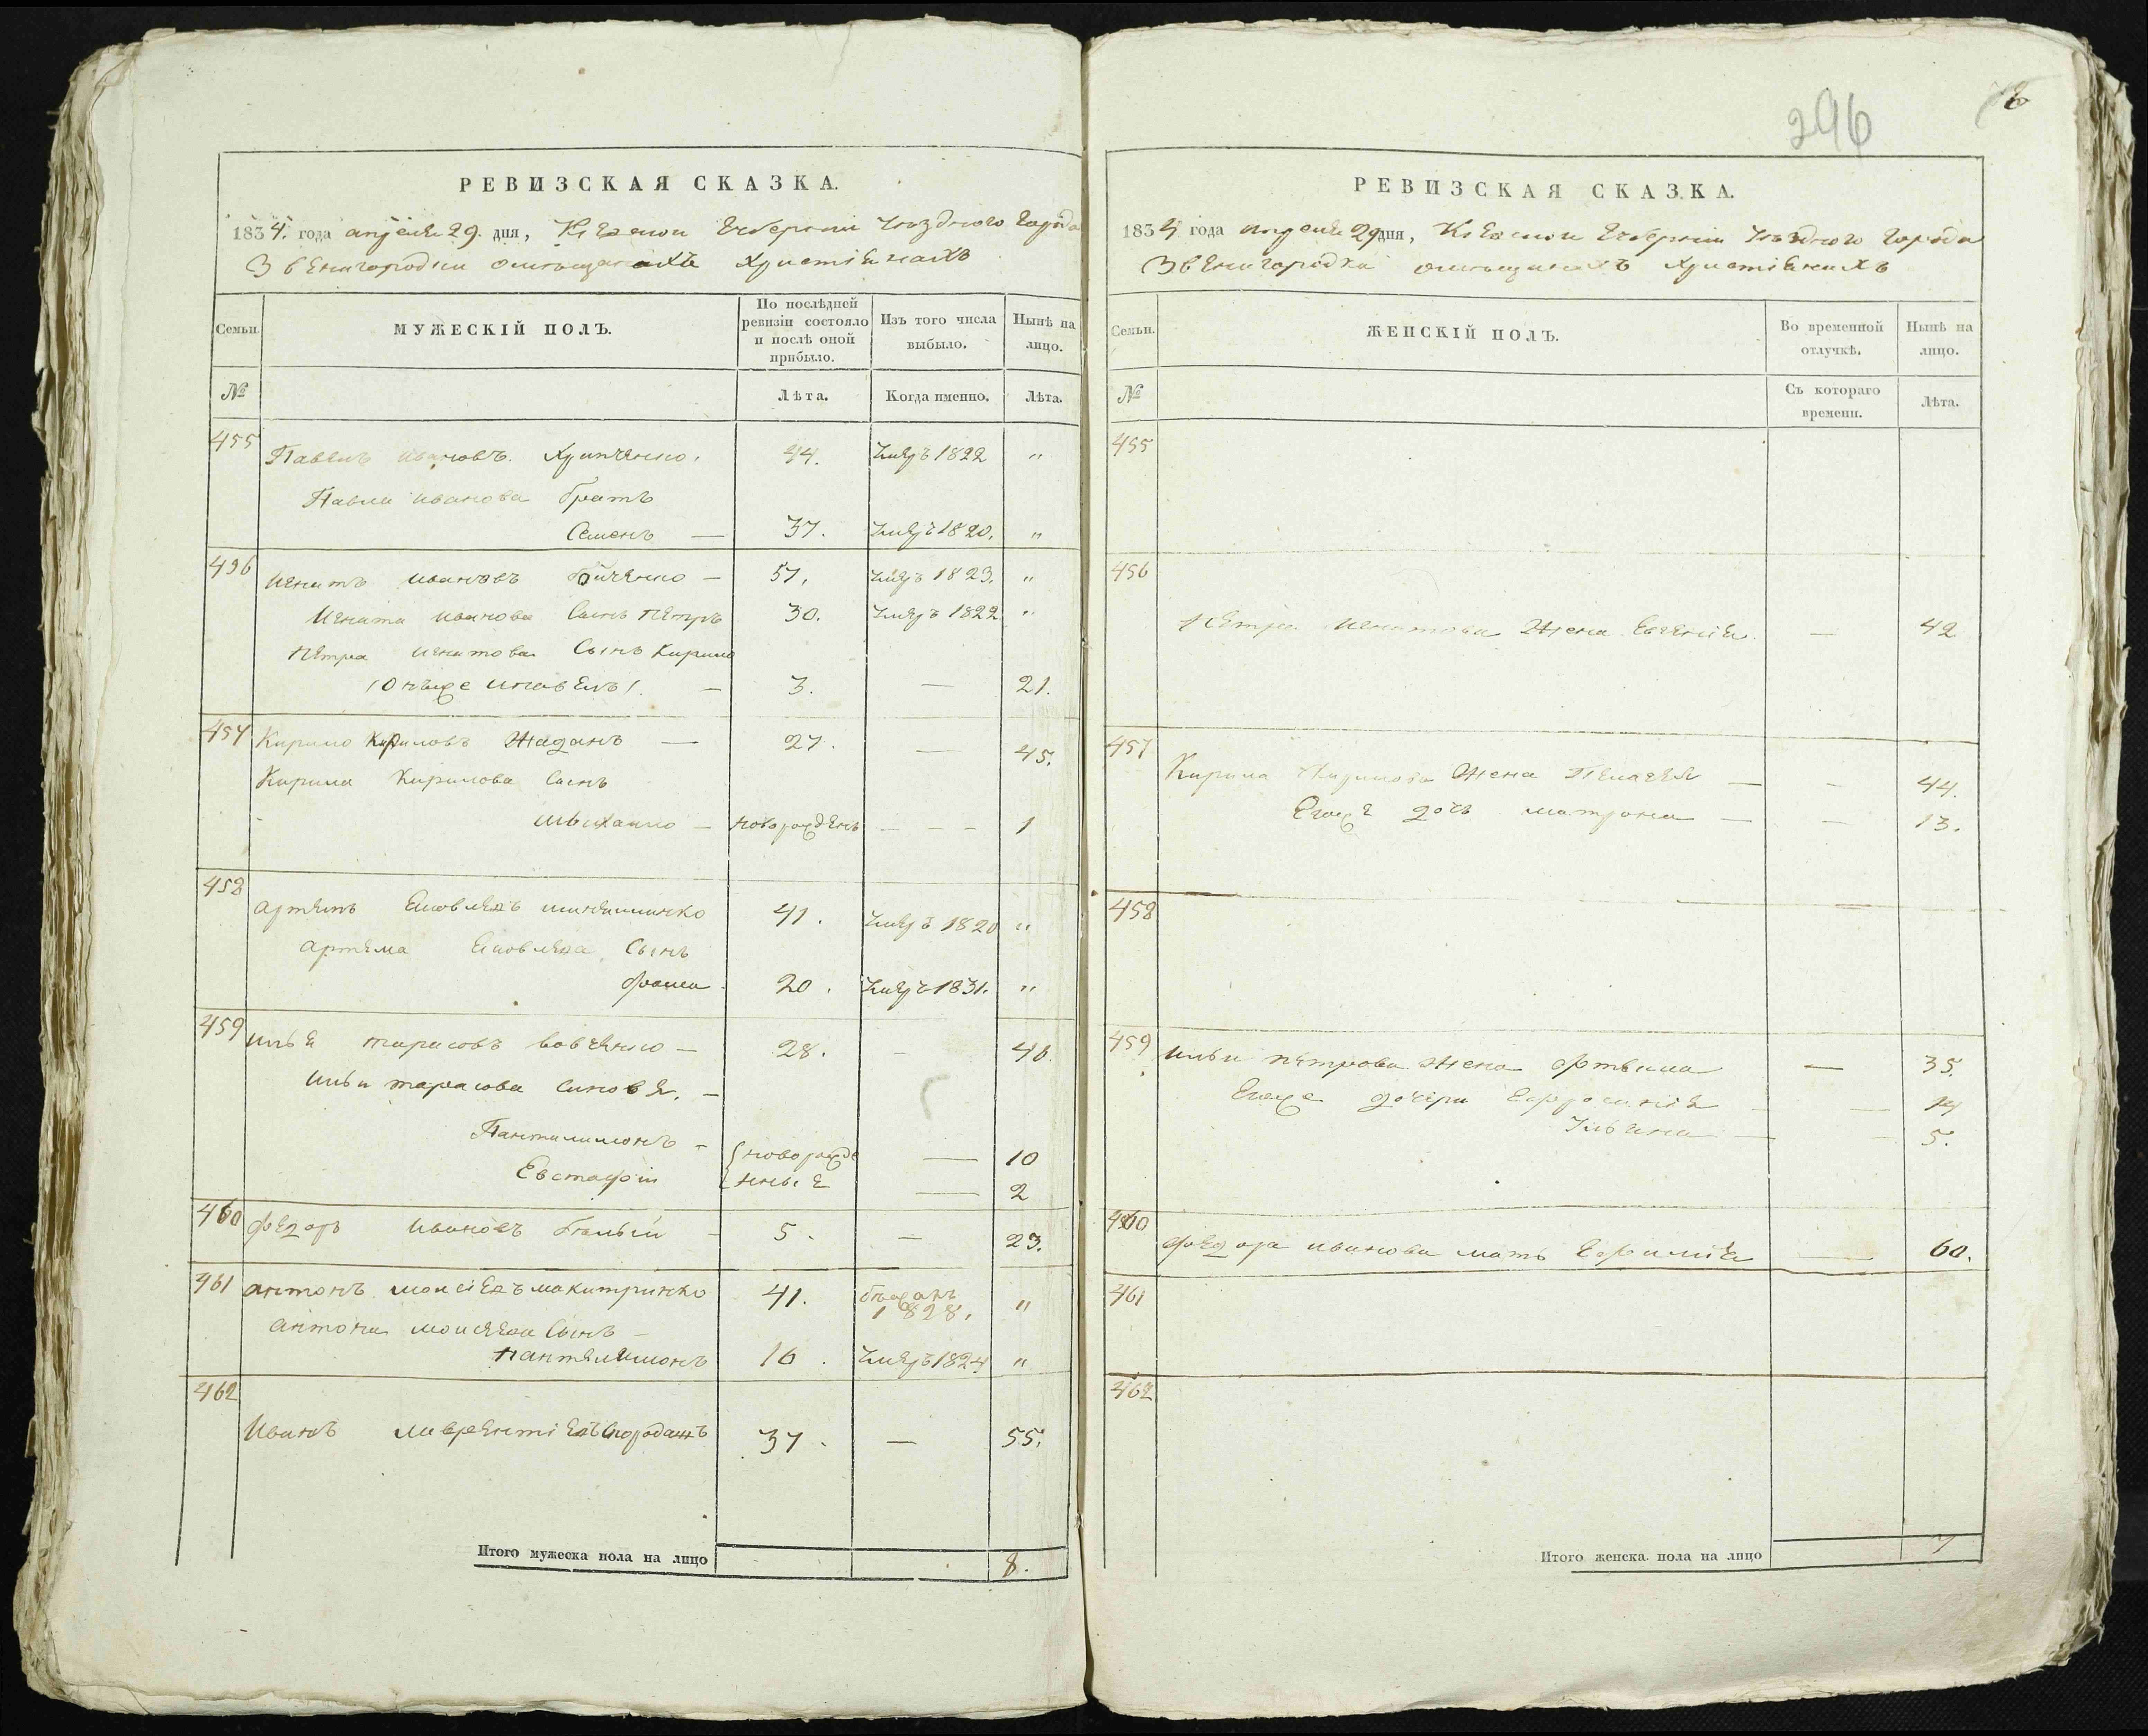 РЕВИЗСКАЯ СКАЗКА.
1834. года апреля 29. дня, Киевской Губернии Уѣздного Города
Звенигородки омѣщанахъ Христіянахъ
Семьи. МУЖЕСКІЙ ПОЛЪ. По послѣдней ревизіи состояло и послѣ оной прибыло. Изъ того числа выбыло. Нынѣ на лицо.
№ Лѣта. Когда именно. Лѣта.
455 Павелъ Ивановъ Хрипченко. 44. Умеръ 1822 "
Павла Иванова братъ
Семенъ — 37. Умеръ 1820. "
456 Игнатъ Ивановъ — 57. Умеръ 1823. "
Игната Иванова Сынъ Петръ 30. Умеръ 1822 "
Петра Игнатова Сынъ Кирило
/онъже Павелъ/. — 3. — 21.
457 Кирило Кириловъ Жаданъ — 27. — 45.
Кирила Кирилова Сынъ
Михайло — новорожденъ — — — 1
458 Артемъ Яковлевъ 41. Умеръ 1820 "
Артема Яковлева Сынъ
Фома 20. Умеръ 1831. "
459 Илья Тарасовъ Вовченко — 28. — 46.
Ильи Тарасова Синовя. —
Пантилимонъ — новорожде — 10
Евстафій нные — 2
460 Федоръ Ивановъ Бѣлый — 5. — 23.
461 Антонъ Моисіевъ Макитринко 41. бѣжалъ 1828. "
Антона Моисеева Сынъ —
Пантелимонъ 16. Умеръ 1824 "
462
Иванъ Лаврентіевъ 37. — 55.
Итого мужеска пола на лицо 8.
296
6
РЕВИЗСКАЯ СКАЗКА.
1834 года апреля 29 дня, Киевской Губерніи Уѣздного Города
Звенигородки омѣщанахъ Христіянахъ
Семьи. ЖЕНСКІЙ ПОЛЪ. Во временной отлучкѣ. Нынѣ на лицо.
№ Съ котораго времени. Лѣта.
455
456
Петра Игнатова Жена Евгенія — 42
457
Кирила Кирилова Жена Пелагея — — 44.
Егоже дочь Матрона — — 13.
458
459 Ильи Петрова Жена Фотѣина — 35.
Егоже дочери Ефросинія — — 14
Ульяна — — 5.
460
Федора Иванова мать Ефимія — 60.
461
462
Итого женска. пола на лицо 7